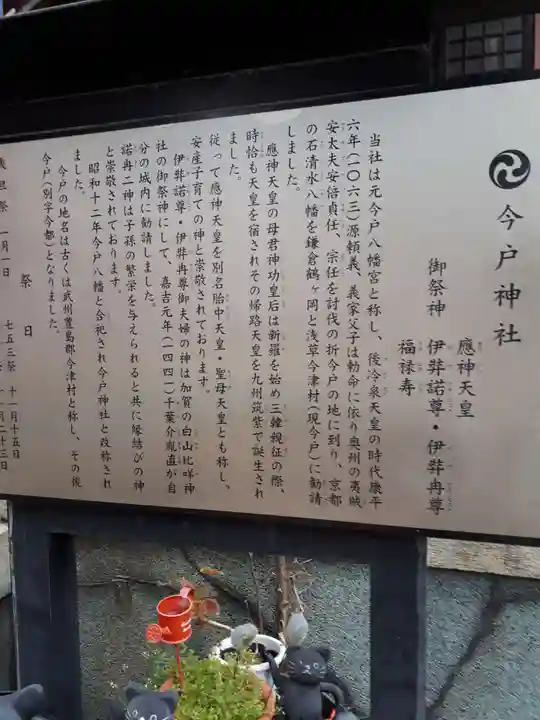 今戸神社
御祭神
應神天皇
伊弉諾尊・伊弉冉尊
福禄寿
当社は元今戸八幡宮と称し、後冷泉天皇の時代康平
六年(一〇六三)源頼義、義家父子は勅命に依り奥州の夷賊
安太夫安倍貞任、宗任を討伐の折今戸の地に到り、京都
の石清水八幡を鎌倉鶴ヶ岡と浅草今津村(現今戸)に勧請
しました。
應神天皇の母君神功皇后は新羅を始め三韓親征の際、
時恰も天皇を宿されその帰路天皇を九州筑紫で誕生され
ました。
従って應神天皇を別名胎中天皇・聖母天皇とも称し、
安産子育ての神と崇敬されております。
伊弉諾尊・伊弉冉尊御夫婦の神は加賀の白山比咩神
社の御祭神にして、嘉吉元年(一四四一)千葉介胤直が自
分の城内に勧請しました。
諾冉二神は子孫の繁栄を与えられると共に縁結びの神
と崇敬されております。
昭和十二年今戸八幡と合祀され今戸神社と改称され
ました。
今戸の地名は古くは武州豊島郡今津村と称し、その後
今戸(別字今都)となりました。
祭日
歳旦祭 一月一日 七五三祭 十一月十五日